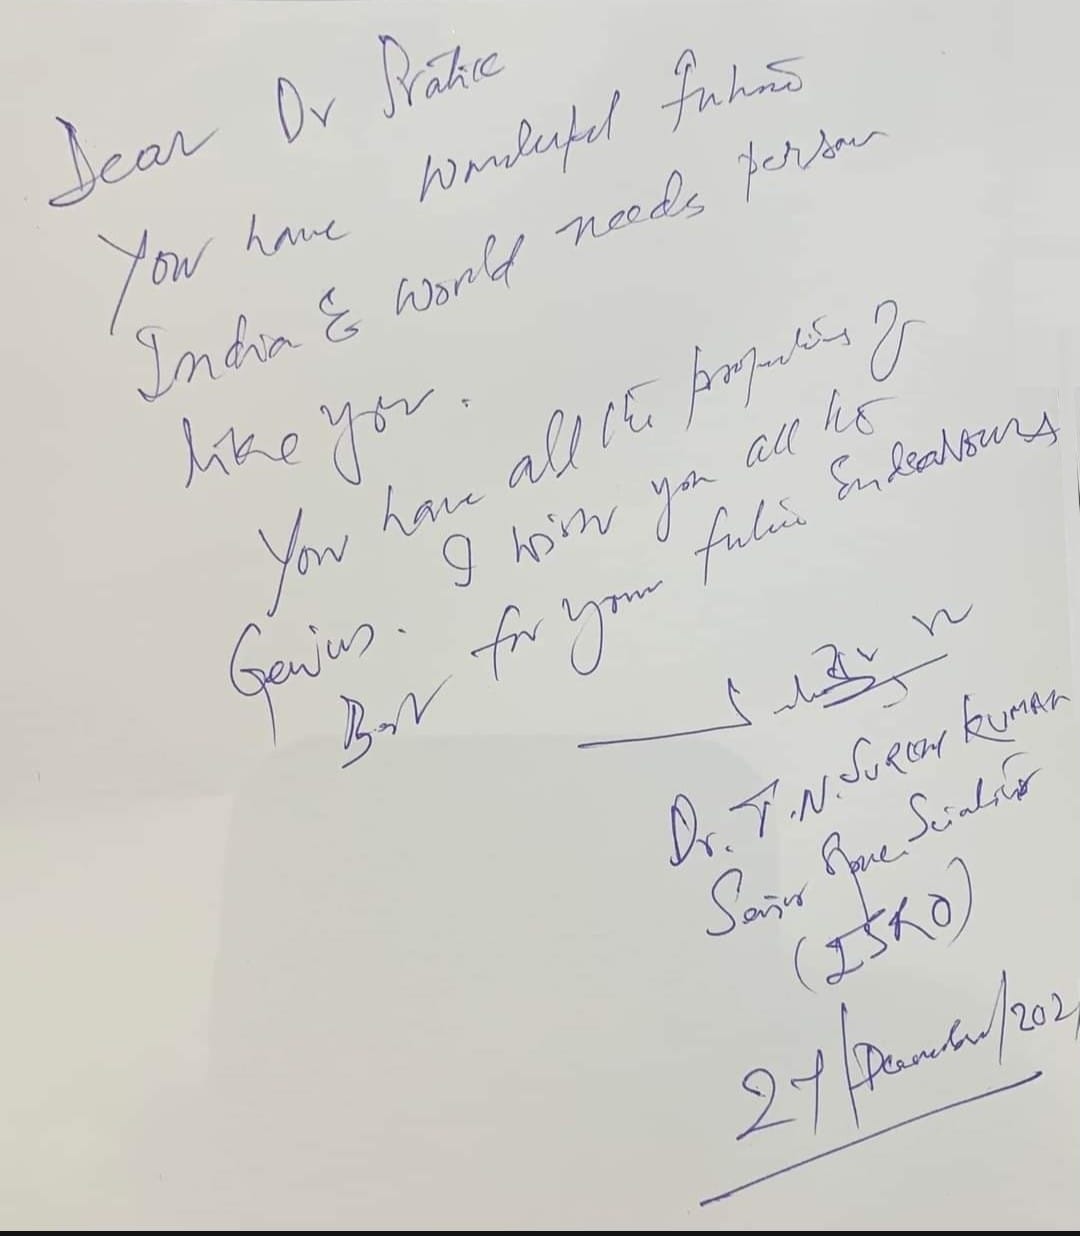 Dear Dr Pratice
You have wonderful future
India & world needs person
like you.
You have all the properties of
Genius. I wish you all the
Best for your future Endeavours
Dr. T.N. SURESH KUMAR
Senior Space Scientist
(ISRO)
27/December/202